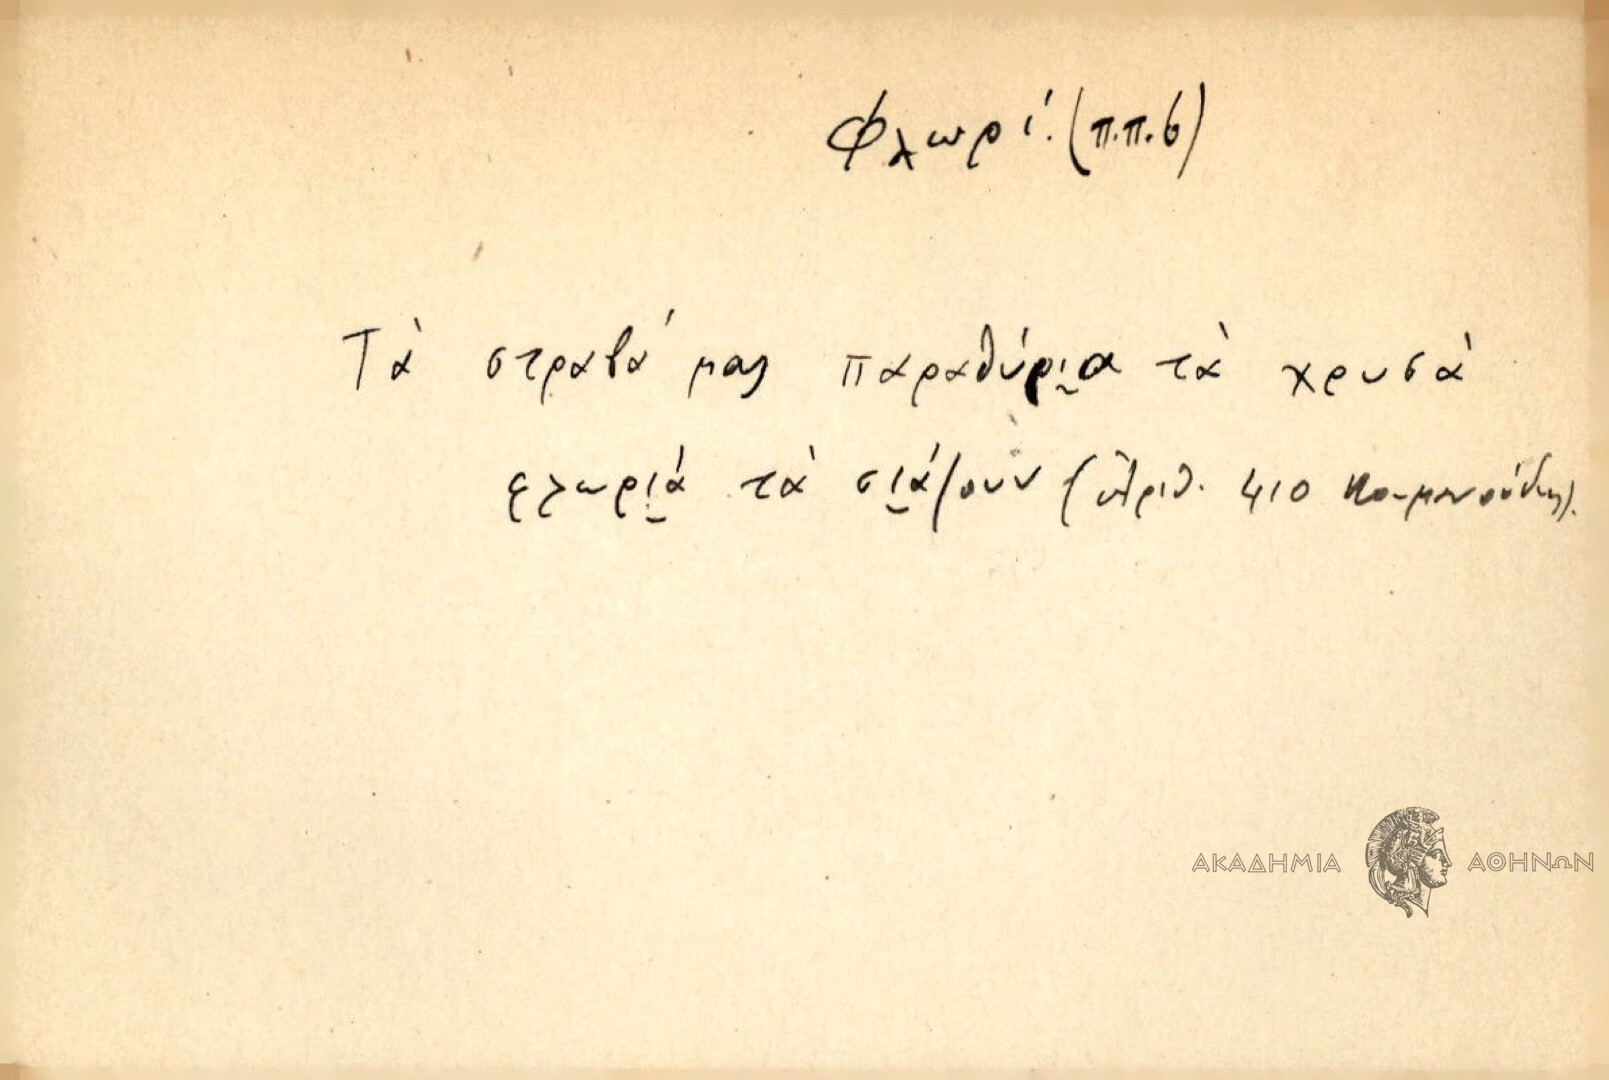 Φλωρί. (π.π.6)
Τὰ στραβά μας παραθύρι̯α τὰ χρυσὰ
φλωρι̯ά τὰ σι̯άζουν (ἀριθ. 410 Κουμανούδης).
ΑΚΑΔΗΜΙΑ ΑΘΗΝΩΝ